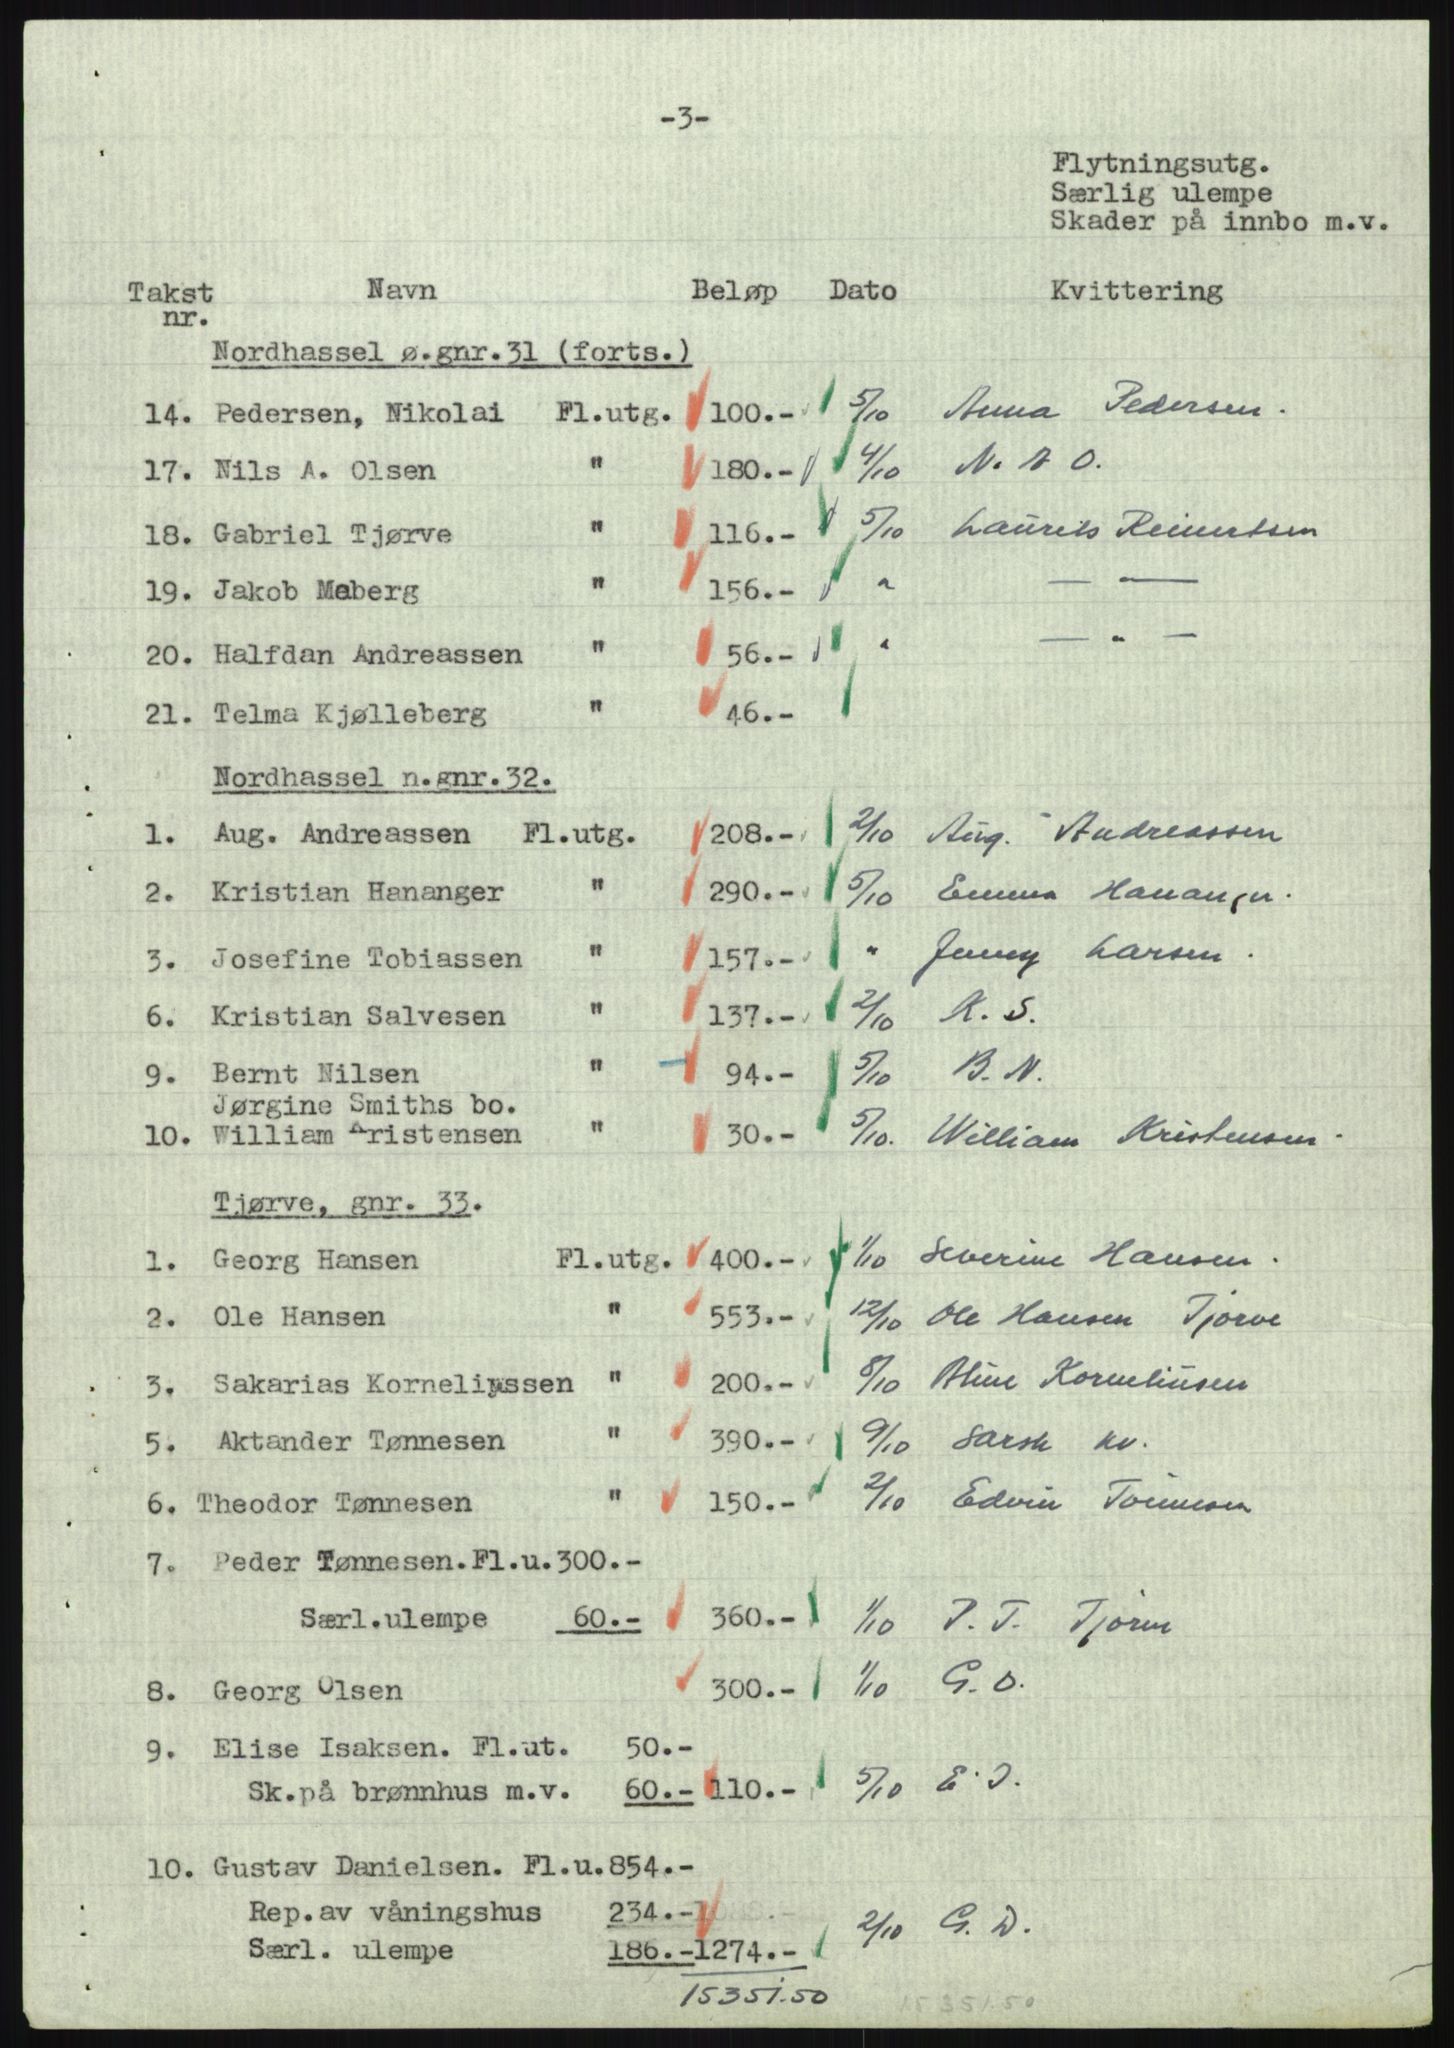 -3-
Flytningsutg.
Særlig ulempe
Skader på innbo m.v.
Takst nr. Navn Beløp Dato Kvittering
Nordhassel ø.gnr.31 (forts.)
14. Pedersen, Nikolai Fl.utg. 100.- 5/10 Anna Pedersen.
17. Nils A. Olsen " 180.- 4/10 N. A O.
18. Gabriel Tjørve " 116.- 5/10 Laurits Reinertsen
19. Jakob Meberg " 156.- " — " —
20. Halfdan Andreassen " 56.- " — " —
21. Telma Kjølleberg " 46.-
Nordhassel n.gnr.32.
1. Aug. Andreassen Fl.utg. 208.- 2/10 Aug. Andreassen
2. Kristian Hananger " 290.- 5/10 Emma Hananger.
3. Josefine Tobiassen " 157.- " Jenny Larsen.
6. Kristian Salvesen " 137.- 2/10 K. S.
9. Bernt Nilsen " 94.- 5/10 B. N.
Jørgine Smiths bo.
10. William Kristensen " 30.- 5/10. William Kristensen.
Tjørve, gnr. 33.
1. Georg Hansen Fl.utg. 400.- 1/10 Severine Hansen.
2. Ole Hansen " 553.- 12/10 Ole Hansen Tjørve
3. Sakarias Korneliussen " 200.- 8/10 Aline Korneliusen
5. Aktander Tønnesen " 390.- 9/10 Sarah
6. Theodor Tønnesen " 150.- 2/10 Edvin Tønnesen
7. Peder Tønnesen.Fl.u.300.-
Særl.ulempe 60.- 360.- 1/10 P. T. Tjörve
8. Georg Olsen 300.- 1/10 G. O.
9. Elise Isaksen. Fl.ut. 50.-
Sk.på brønnhus m.v. 60.- 110.- 5/10 E. I.
10. Gustav Danielsen. Fl.u.854.-
Rep.av våningshus 234.-
Særl. ulempe 186.-1274.- 2/10 G. D.
15351.50 15351.50